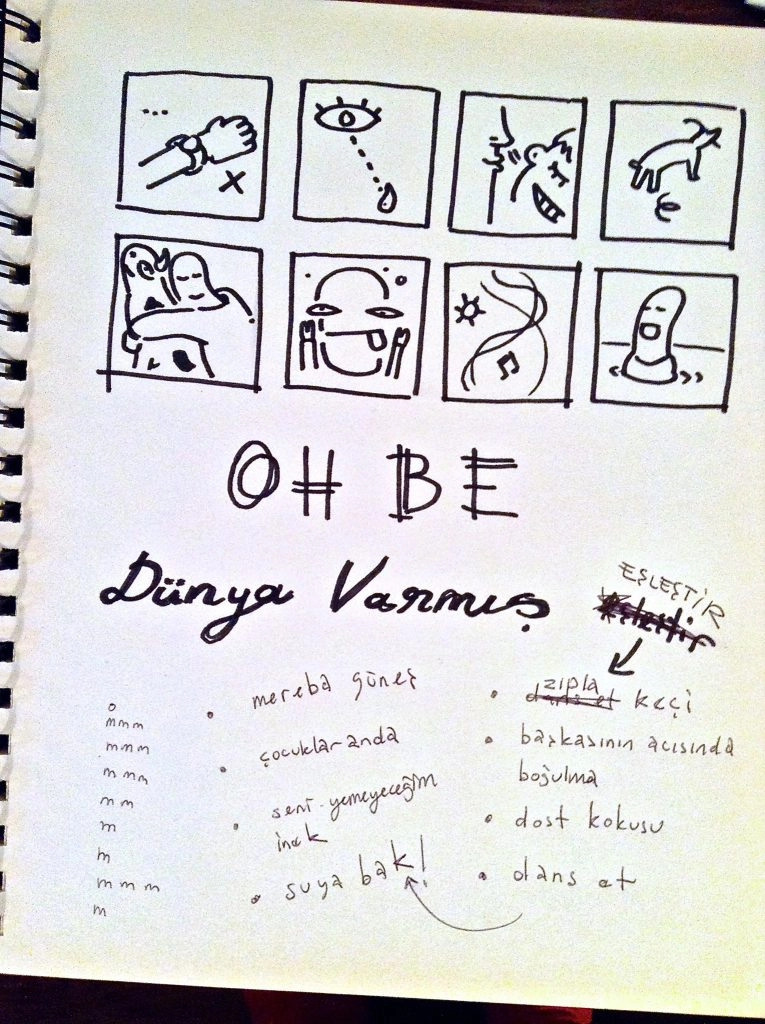 ...
x
OH BE
Dünya Varmış
EŞLEŞTİR
o
mmm
mmm
mmm
mm
m
m
mmm
m
• mereba güneş
• çocuklar anda
• seni yemeyeceğim
inek
• suya bak!
• zıpla keçi
• başkasının acısında
boğulma
• dost kokusu
• dans et